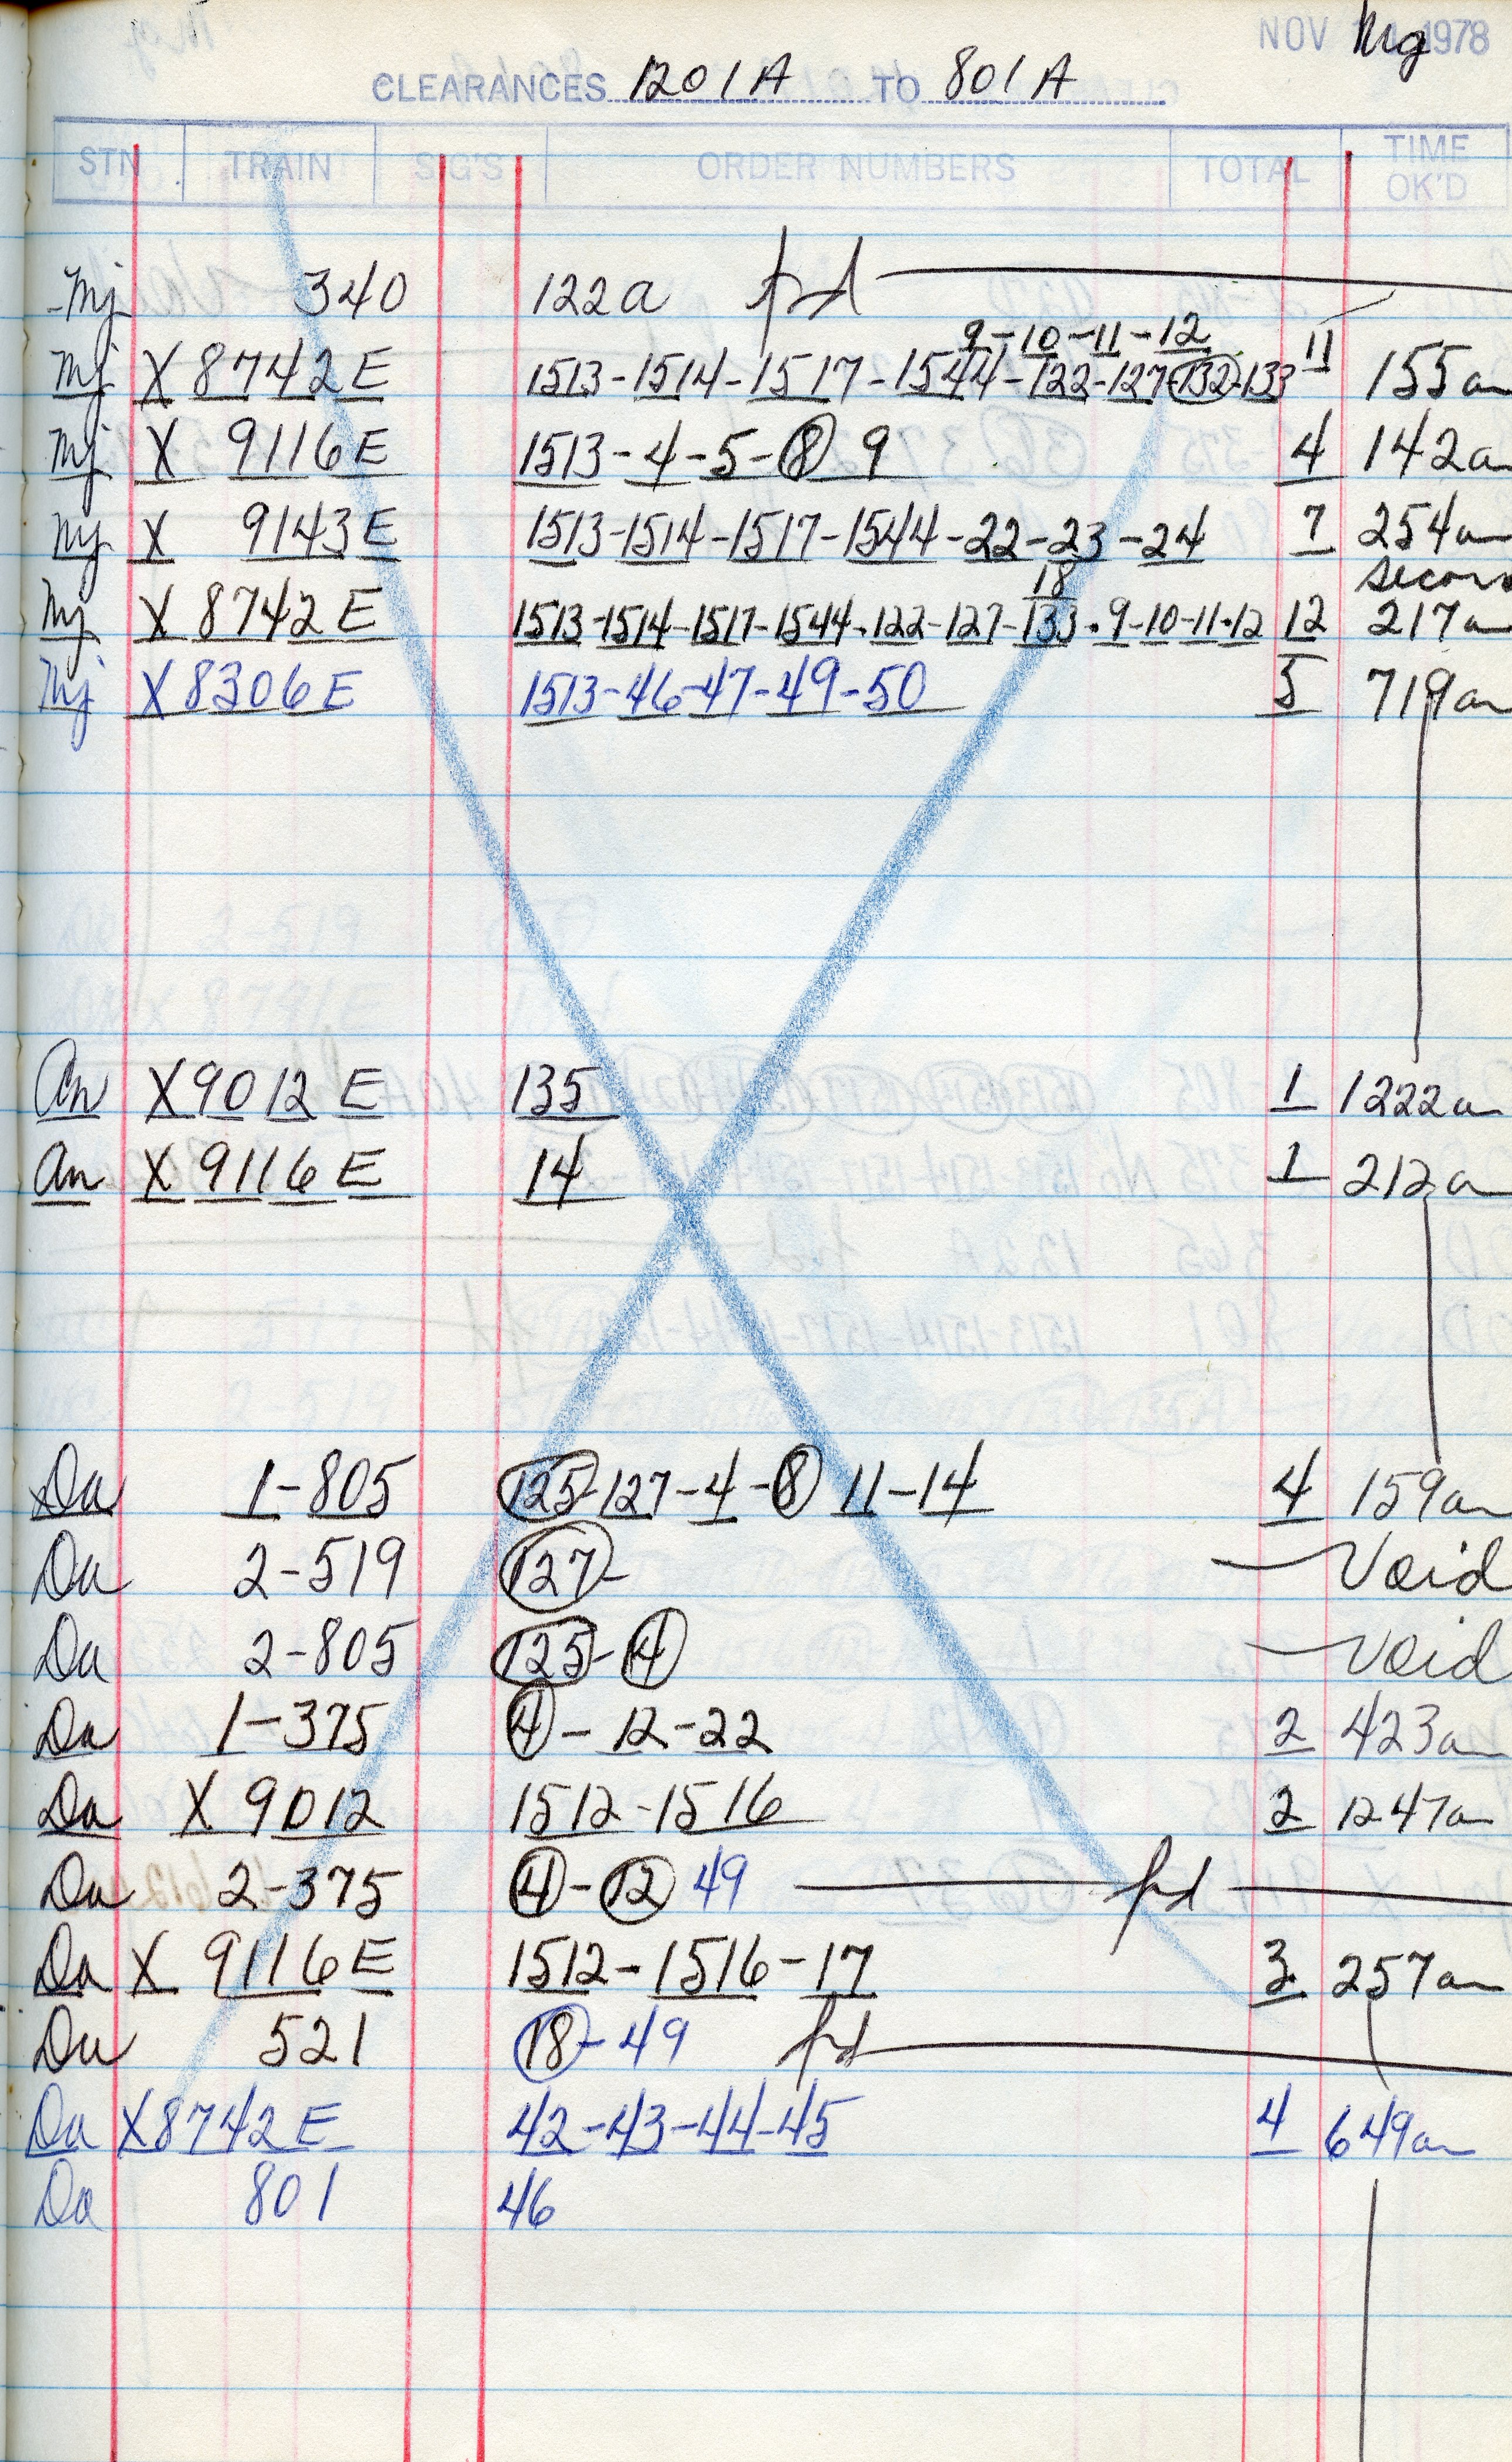 NOV 1978 Mg
CLEARANCES 1201A TO 801A
STN TRAIN SIG'S ORDER NUMBERS TOTAL TIME OK'D
Mj 340 122a fd
9-10-11-12
Mj X 8742E 1513-1514-1517-1544-122-127-132-133 11 155am
Mj X 9116E 1513-4-5-8 9 4 142am
Mj X 9143E 1513-1514-1517-1544-22-23-24 7 254am
18 second
Mj X 8742E 1513-1514-1517-1544-122-127-133-9-10-11-12 12 217am
Mj X8306E 1513-46-47-49-50 5 719am
An X9012E 135 1 1222am
An X9116E 14 1 212am
Da 1-805 125-127-4-8 11-14 4 159am
Da 2-519 127- Void
Da 2-805 125-4 Void
Da 1-375 4-12-22 2 423am
Da X 9012 1512-1516 2 1247am
Da 2-375 4-12 49 fd
Da X 9116E 1512-1516-17 3 257am
Da 521 18-49 fd
Da X8742E 42-43-44-45 4 649am
Da 801 46